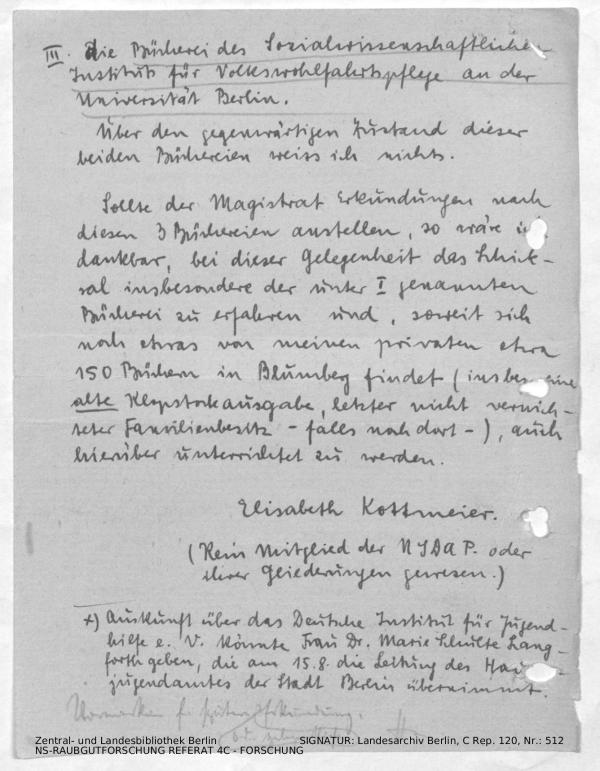 III. die Bücherei des Sozialwissenschaftlichen
Instituts für Volkswohlfahrtspflege an der
Universität Berlin.
Über den gegenwärtigen Zustand dieser
beiden Büchereien weiss ich nichts.
Sollte der Magistrat Erkundungen nach
diesen 3 Büchereien anstellen, so wäre ich
dankbar, bei dieser Gelegenheit das Schick-
sal insbesondere der unter I genannten
Bücherei zu erfahren und, soweit sich
noch etwas von meinen privaten etwa
150 Büchern in Blumberg findet (insbes. eine
alte Klopstockausgabe, letzter nicht vernich-
teter Familienbesitz - falls noch dort -), auch
hierüber unterrichtet zu werden.
Elisabeth Kottmeier.
(Kein Mitglied der NSDAP. oder
ihrer Gliederungen gewesen.)
x) Auskunft über das Deutsche Institut für Jugend-
hilfe e. V. könnte Frau Dr. Marie Schulte Lang-
forth geben, die am 15.8. die Leitung des Haupt-
jugendamtes der Stadt Berlin übernimmt.
f. spätere Erkundung.
Zentral- und Landesbibliothek Berlin
SIGNATUR: Landesarchiv Berlin, C Rep. 120, Nr.: 512
NS-RAUBGUTFORSCHUNG REFERAT 4C - FORSCHUNG